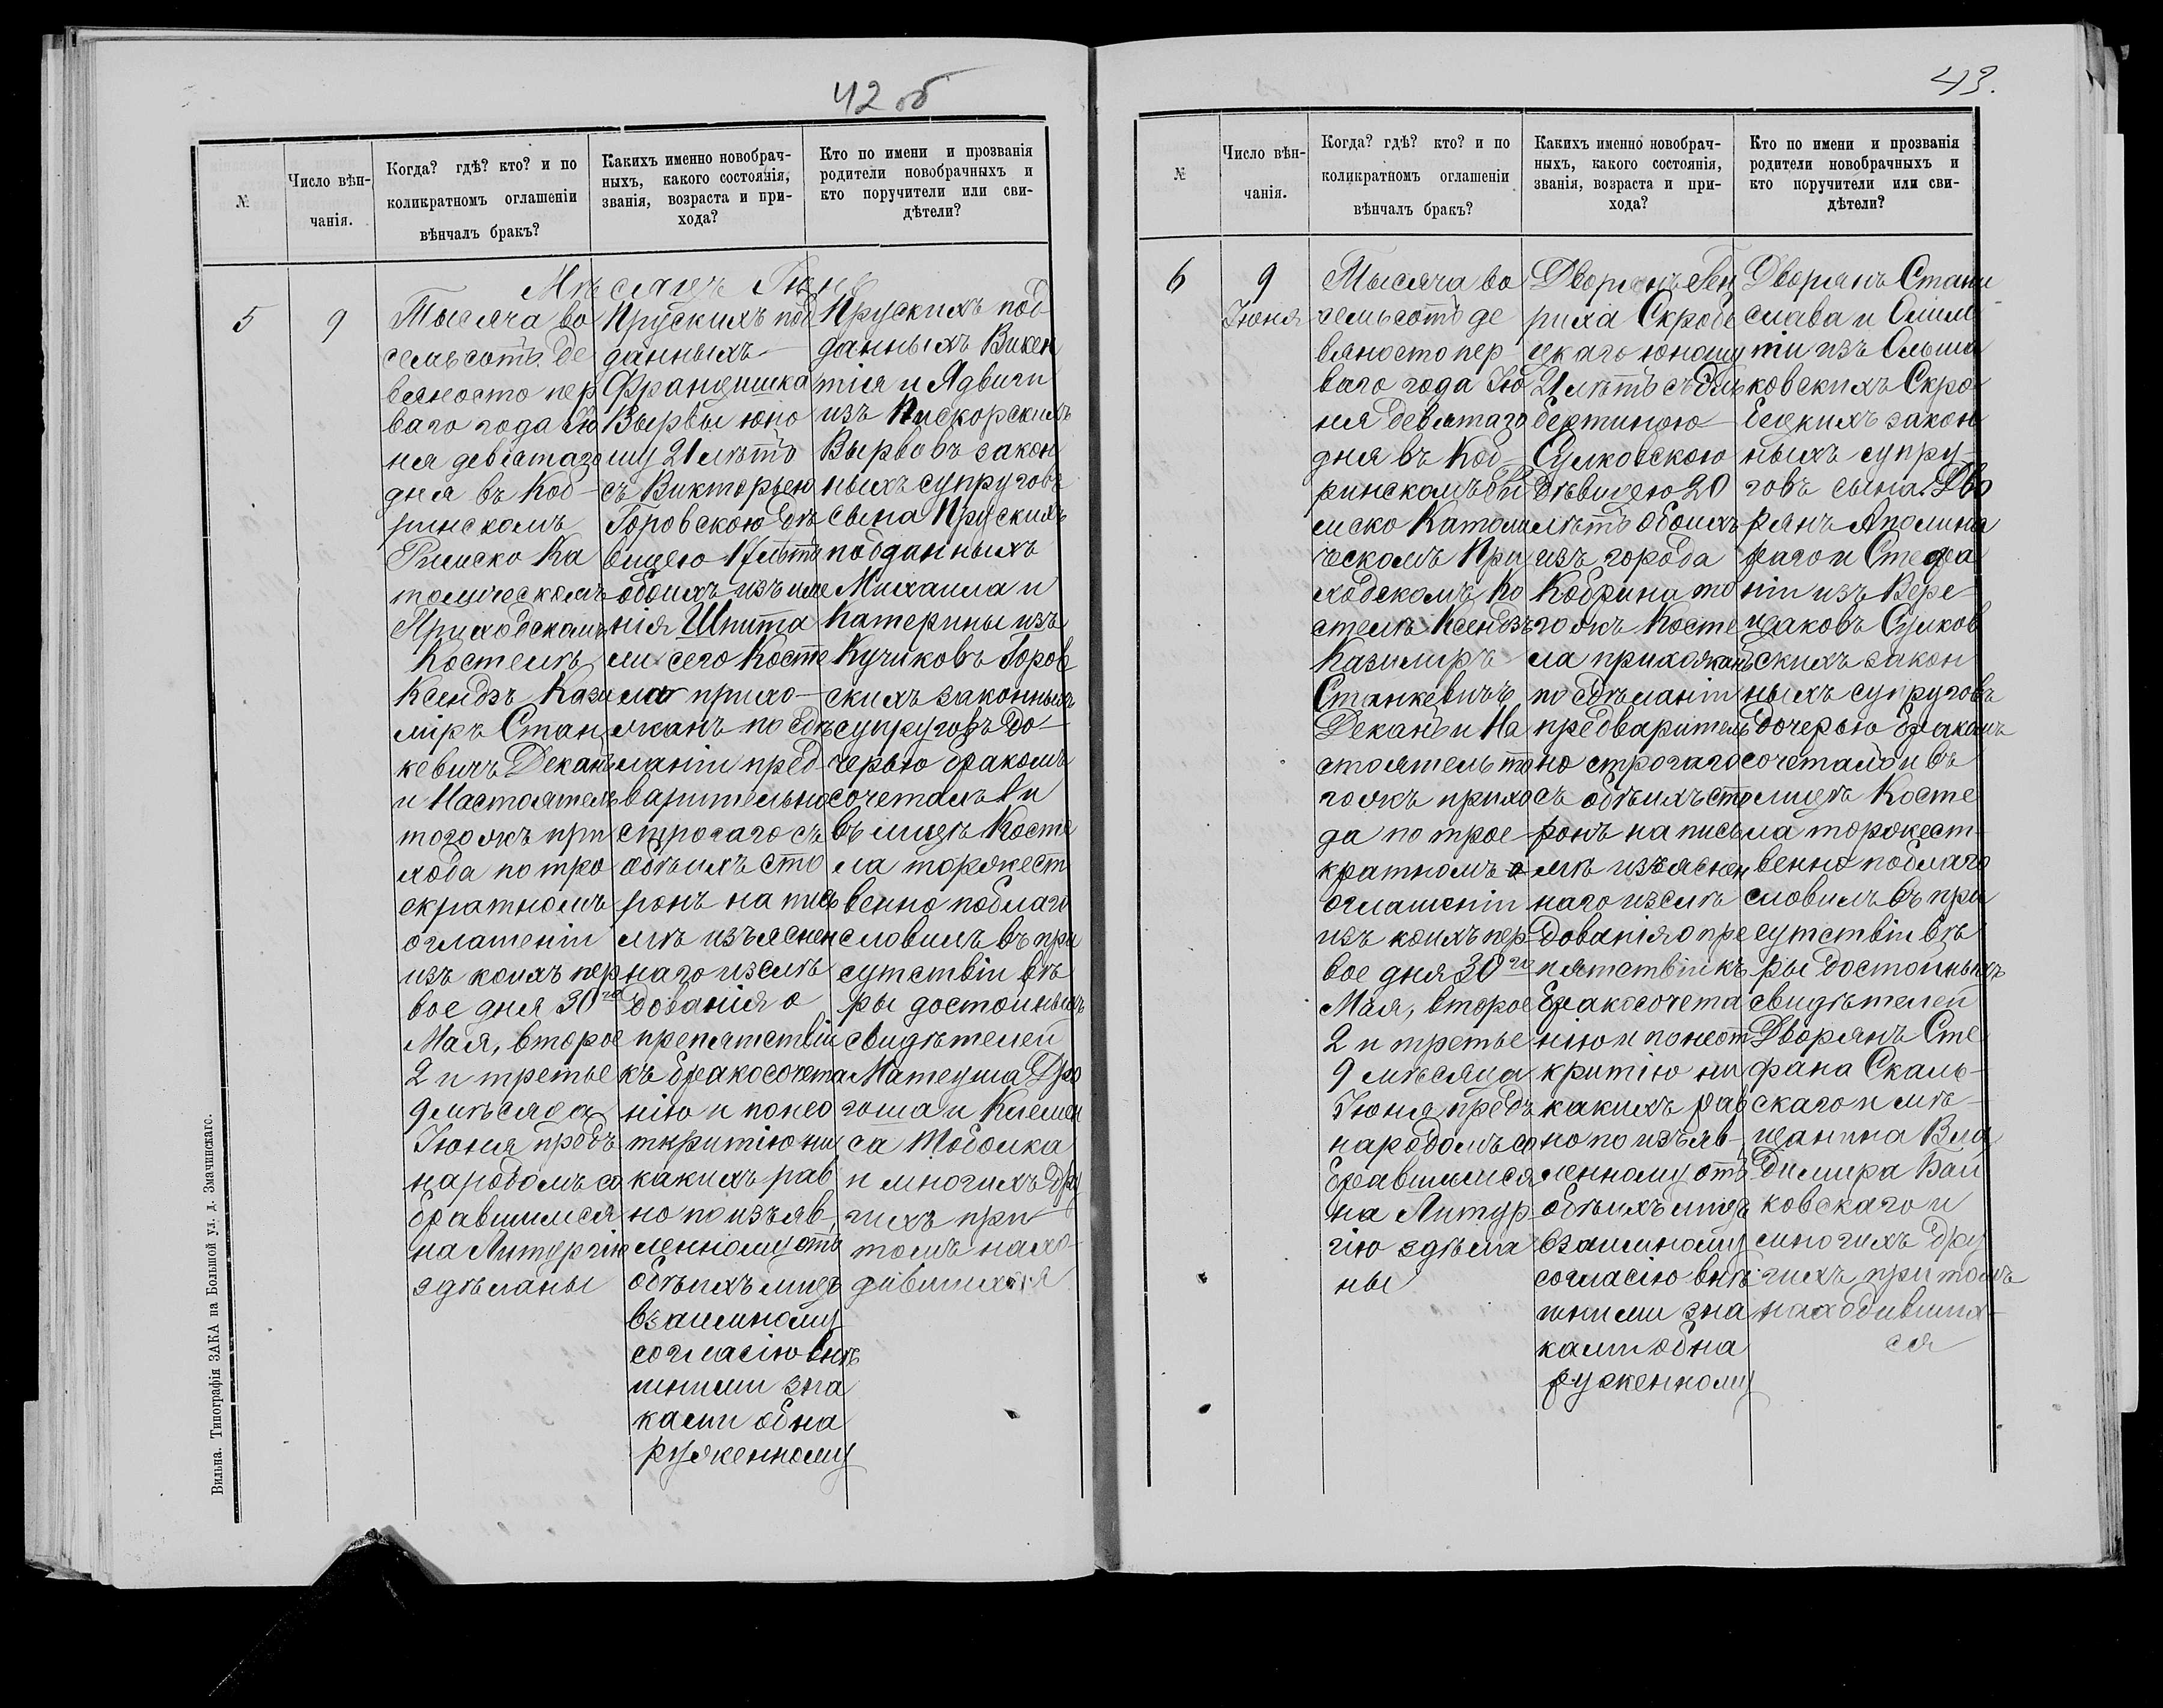 42 об
№
Число вѣн-
чанія.
Когда? гдѣ? кто? и по
коликратномъ оглашеніи
вѣнчалъ бракъ?
Какихъ именно новобрач-
ныхъ, какого состоянія,
званія, возраста и при-
хода?
Кто по имени и прозванія
родители новобрачныхъ и
кто поручители или сви-
дѣтели?
Мѣсяцъ Іюнь
5
9
Тысяча во
семьсотъ де
вяносто пер
ваго года Ію
ня девятаго
дня въ Коб-
ринскомъ
Римско Ка
толическомъ
Приходскомъ
Костелѣ
Ксендзъ Кази
міръ Стан
кевичъ Деканъ
и Настоятель
тогожъ при
хода по тро
екратномъ
оглашеніи
изъ коихъ пер
вое дня 30го
Мая, второе
2 и третье
9 мѣсяца
Іюня предъ
народомъ со
бравшимся
на Литургію
здѣланы
Прускихъ под
данныхъ
Францишка
Вырвы юно
шу 21 лѣтъ
съ Викторьею
Горовскою дѣ
вицею 17 лѣтъ
обоихъ изъ име
нія Шпита
ли сего Косте
ла прихо-
жанъ по здѣ
ланіи пред
варительно
строгаго съ
обѣихъ сто
ронъ на пись
мѣ изъяснен
наго изслѣ
дованія о
препятствіи
къ бракосочета
нію и понео
ткритію ни
какихъ рав
но по изъяв-
ленному отъ
обѣихъ лицъ
взаимному
согласію внѣ
шними зна
ками обна
руженному
Прускихъ под
данныхъ Викен
тія и Ядвиги
изъ Пискорскихъ
Вырвовъ закон
ныхъ супруговъ
сына Прускихъ
подданныхъ
Михаила и
Катерины изъ
Кучиковъ Горов
скихъ законныхъ
супруговъ до-
черью бракомъ
сочеталъ и
въ лицѣ Косте
ла торжест
венно поблаго
словилъ въ при
сутствіи вѣ
ры достойныхъ
свидѣтелей
Матеуша Дро
гоша и Клемен
са Тоболка
и многихъ дру
гихъ при
томъ нахо-
дившихся
Вильна. Типографія ЗАКА на Большой ул. д. Змачинскаго.
43.
№
Число вѣн-
чанія.
Когда? гдѣ? кто? и по
коликратномъ оглашеніи
вѣнчалъ бракъ?
Какихъ именно новобрач-
ныхъ, какого состоянія,
званія, возраста и при-
хода?
Кто по имени и прозванія
родители новобрачныхъ и
кто поручители или сви-
дѣтели?
6
9
Іюня
Тысяча во
семьсотъ де
вяносто пер
ваго года Ію
ня девятаго
дня въ Коб-
ринскомъ Ри
мско Католи
ческомъ При
ходскомъ Ко
стелѣ Ксендзъ
Казиміръ
Станкевичъ
Деканъ и На
стоятель то
гожъ прихо
да по трое
кратномъ
оглашеніи
изъ коихъ пер
вое дня 30го
Мая, второе
2 и третье
9 мѣсяца
Іюня предъ
народомъ со
бравшимся
на Литур
гію здѣла
ны
Дворянъ Ген
риха Скробе
цкаго юношу
21 лѣтъ съ Аль
бертиною
Сулковскою
дѣвицею 20
лѣтъ обоихъ
изъ города
Кобрина то
гожъ Косте
ла прихожанъ
по здѣланіи
предваритель
но строгаго
съ обѣихъ сто
ронъ на пись
мѣ изъяснен
наго изслѣ
дованія о пре
пятствіи къ
бракосочета
нію и понеот
критію ни
какихъ рав
но по изъяв-
ленному отъ
обѣихъ лицъ
взаимному
согласію внѣ
шними зна
ками обна
руженному
Дворянъ Стани
слава и Еміли
ти изъ Ольша
ковскихъ Скро
бецкихъ закон
ныхъ супру-
говъ сына. Дво
рянъ Аполина
раго и Стефа
ніи изъ Вере-
щаковъ Сулков
скихъ закон
ныхъ супруговъ
дочерью бракомъ
сочеталъ и въ
лицѣ Косте
ла торжест-
венно поблаго
словилъ въ при
сутствіи вѣ
ры достойныхъ
свидѣтелей
Дворянъ Сте
фана Скаль-
скаго и мѣ-
щанина Вла
димира Бай
ковскаго и
многихъ дру
гихъ притомъ
находивших-
ся